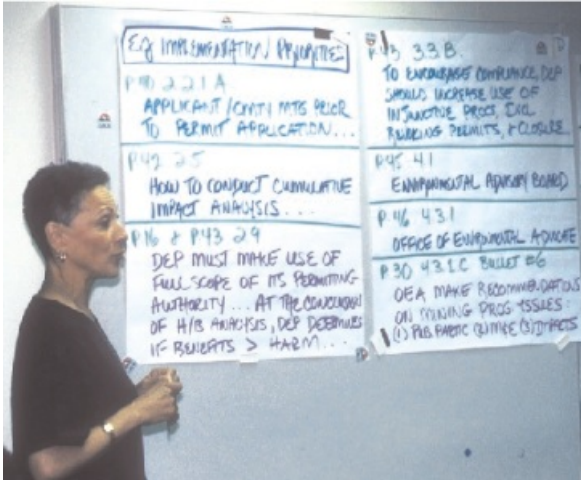 EJ IMPLEMENTATION PRIORITIES
P.40 2.2.1 A
APPLICANT / CMTY MTS PRIOR
TO PERMIT APPLICATION...
P.42 2.5
HOW TO CONDUCT CUMULATIVE
IMPACT ANALYSIS...
P.16 & P.43 2.9
DEP MUST MAKE USE OF
FULL SCOPE OF ITS PERMITTING
AUTHORITY... AT THE CONCLUSION
OF H/B ANALYSIS, DEP DETERMINES
IF BENEFITS > HARM...
P.43 3.3.B.
TO ENCOURAGE COMPLIANCE, DEP
SHOULD INCREASE USE OF
INJUNCTIVE PROCS, INCL
PERMITS, & CLOSURE...
P.45 4.1
ENVIRONMENTAL ADVISORY BOARD
P.46 4.3.1
OFFICE OF ENVIRONMENTAL ADVOCATE
P.30 4.3.1.C BULLET #6
OEA MAKE RECOMMENDATIONS
ON MINING PROG ISSUES:
(1) PUB PARTIC (2) (3) IMPACTS